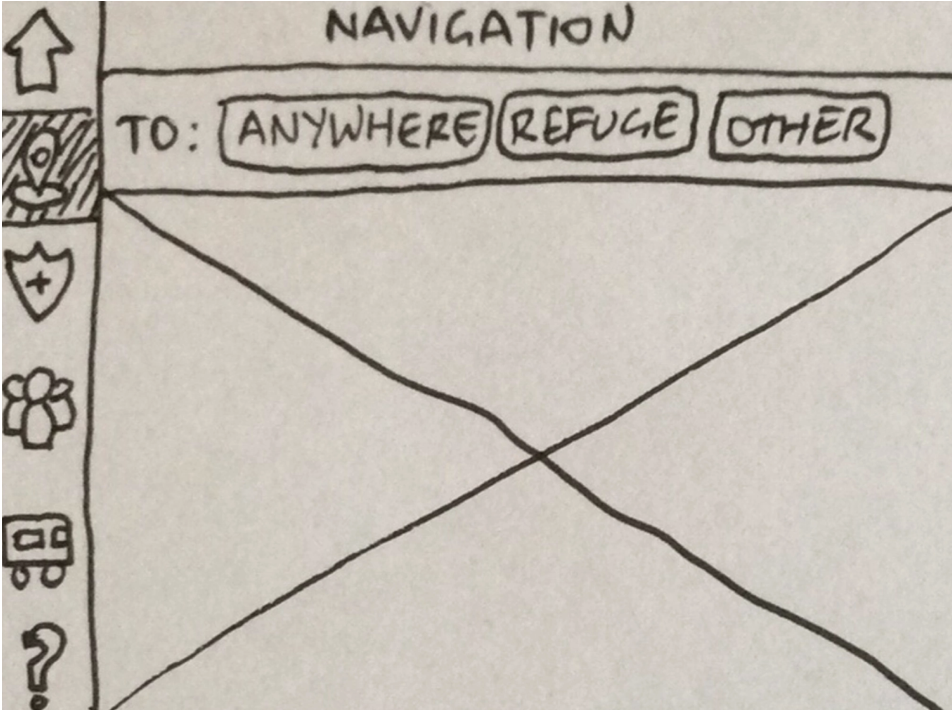 NAVIGATION
TO: ANYWHERE REFUGE OTHER
?